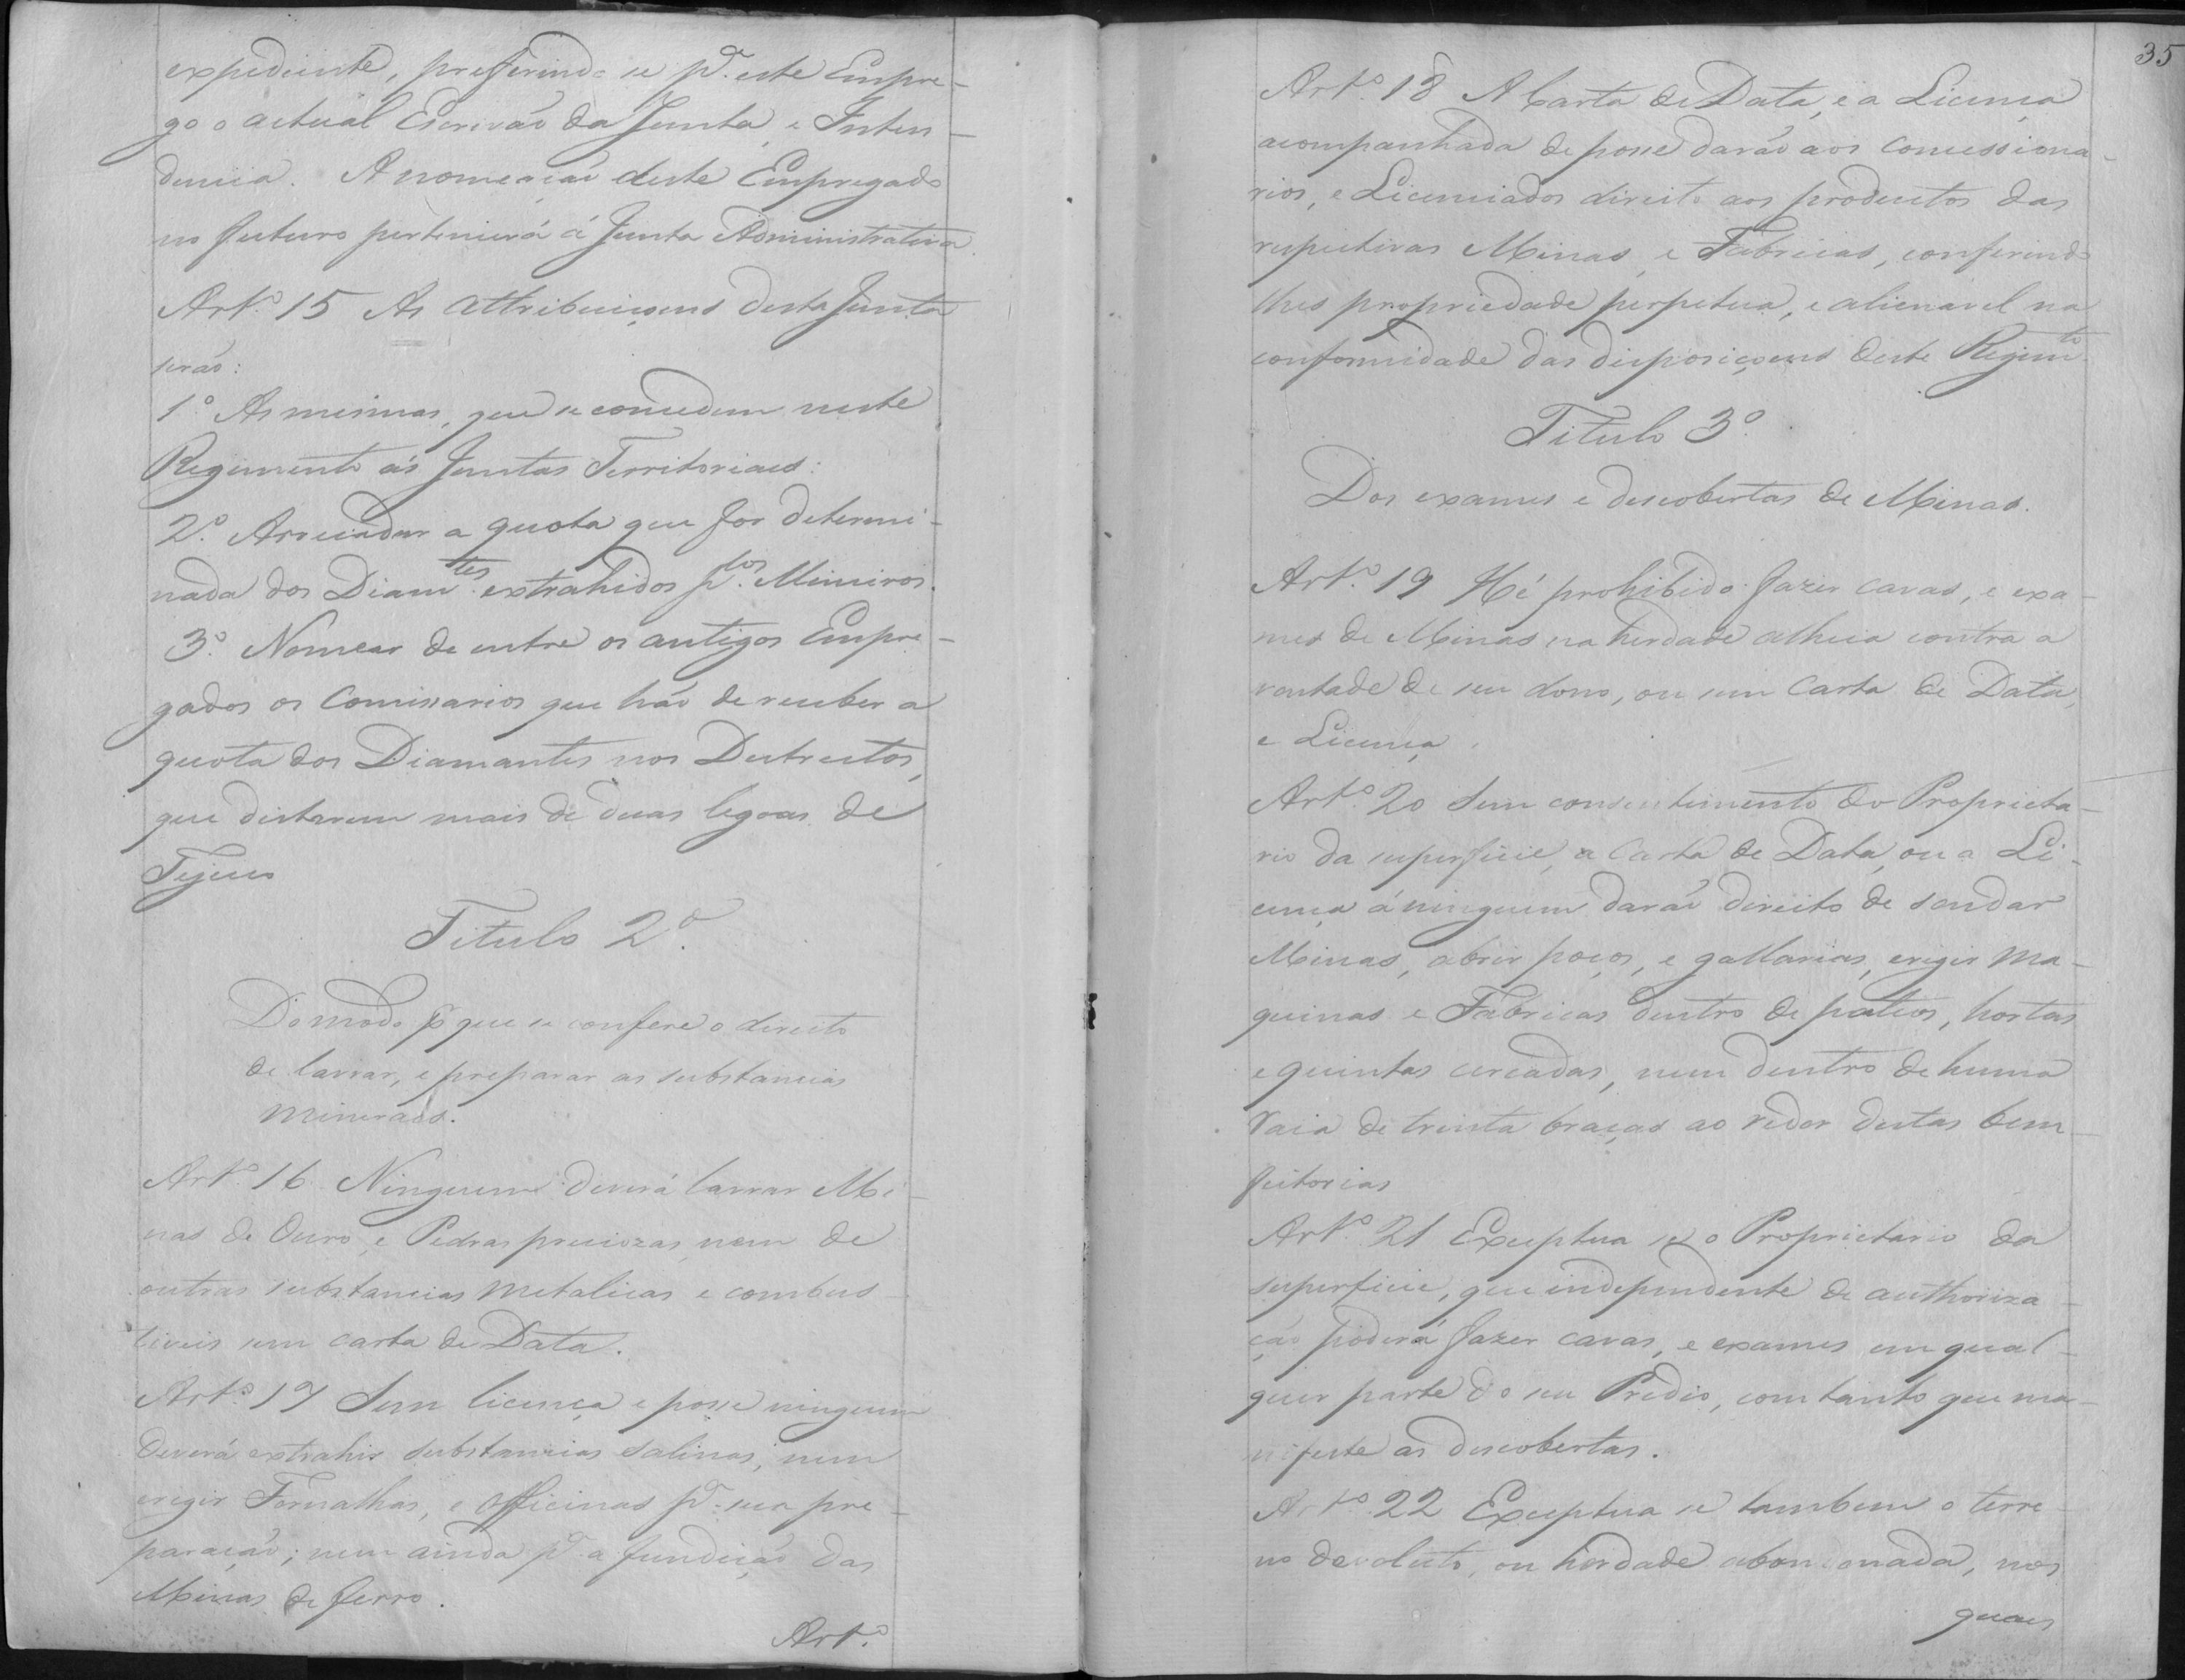 expediente, preferindo se pª este Empre-
go o actual Escrivaõ da Junta, e Inten-
dencia. A nomeaçaõ deste Empregado
no futuro pertencerá á Junta Administrativa.
Artº 15 As attribuiçoens desta Junta
seraõ:
1º As mesmas, que se concedem neste
Regimento ás Juntas Territoriaes:
2º Arrecadar a quota que for determi-
nada dos Diamtes extrahidos plos Mineiros.
3º Nomear de entre os antigos Empre-
gados os Comissarios que haõ de receber a
quota dos Diamantes nos Destrictos,
que distarem mais de duas legoas de
Tejuco
Titulo 2º
Do modo pr que se confere o direito
de lavrar, e preparar as substancias
mineraes.
Artº 16 Ninguem deverá lavrar Mi-
nas de Ouro, e Pedras preciozas, nem de
outras substancias metalicas e combus-
tiveis sem carta de Data.
Artº 17 Sem licença e posse ninguem
deverá extrahir substancias salinas, nem
erigir Fornalhas, e Officinas pª sua pre-
paraçaõ; nem ainda pª a fundiçaõ das
Minas de ferro.
Artº
35
Artº 18 A Carta de Data, e a Licença
acompanhada de posse daraõ aos concessiona-
rios, e Licenciados direito aos productos das
respectivas Minas, e Fabricas, conferindo
lhes propriedade perpetua, e alienavel na
conformidade das disposiçoens deste Regimto
Titulo 3º
Dos exames e descobertas de Minas.
Artº 19 Hé prohibido fazer cavas, e exa-
mes de Minas na herdade alheia contra a
vontade de seu dono, ou sem Carta de Data,
e Licença.
Artº 20 Sem consentimento do Proprieta-
rio da superficie, a Carta de Data, ou a Li-
cença á ninguem daraõ direito de sondar
Minas, abrir poços, e gallarias, erigir Ma-
quinas e Fabricas dentro de pateos, hortas
e quintas cercadas, nem dentro de huma
raia de trinta braças ao redor destas bem-
feitorias
Artº 21 Exceptua se o Proprietario da
superficie, que independente de authoriza-
çaõ poderá fazer cavas, e exames em qual-
quer parte do seu Predio, com tanto que ma-
nifeste as descobertas.
Artº 22 Exceptua se tambem o terre-
no devoluto, ou herdade abandonada, nos
quaes